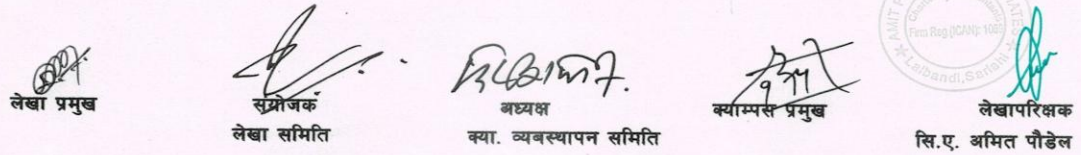 लेखा प्रमुख
संयोजक
लेखा समिति
अध्यक्ष
क्या. व्यबस्थापन समिति
क्याम्पस प्रमुख
लेखापरिक्षक
सि.ए. अमित पौडेल
Firm Reg (ICAN): 108
Lalbandi, Sarlahi